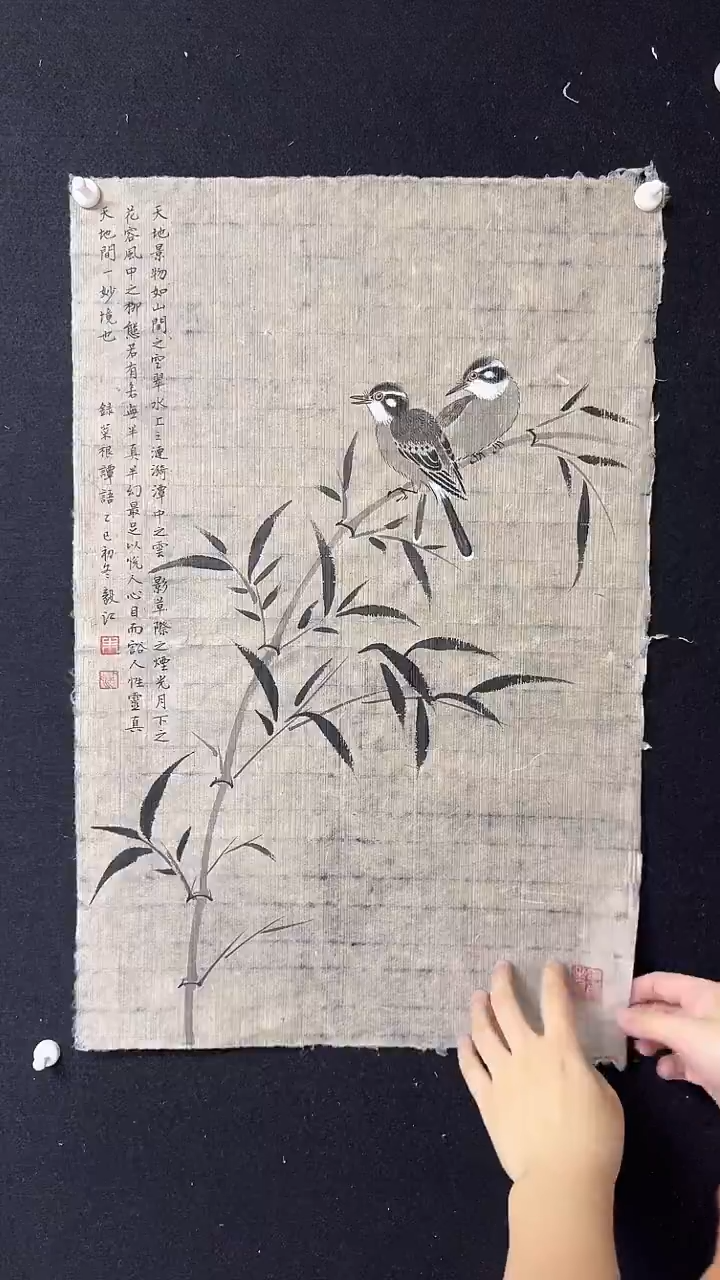 天地景物如山間之空翠水上之漣漪潭中之雲影草際之煙光月下之
花容風中之柳態若有若無半真半幻最足以悅人心目而豁人性靈真
天地間一妙境也 錄菜根譚語乙巳初冬毅江